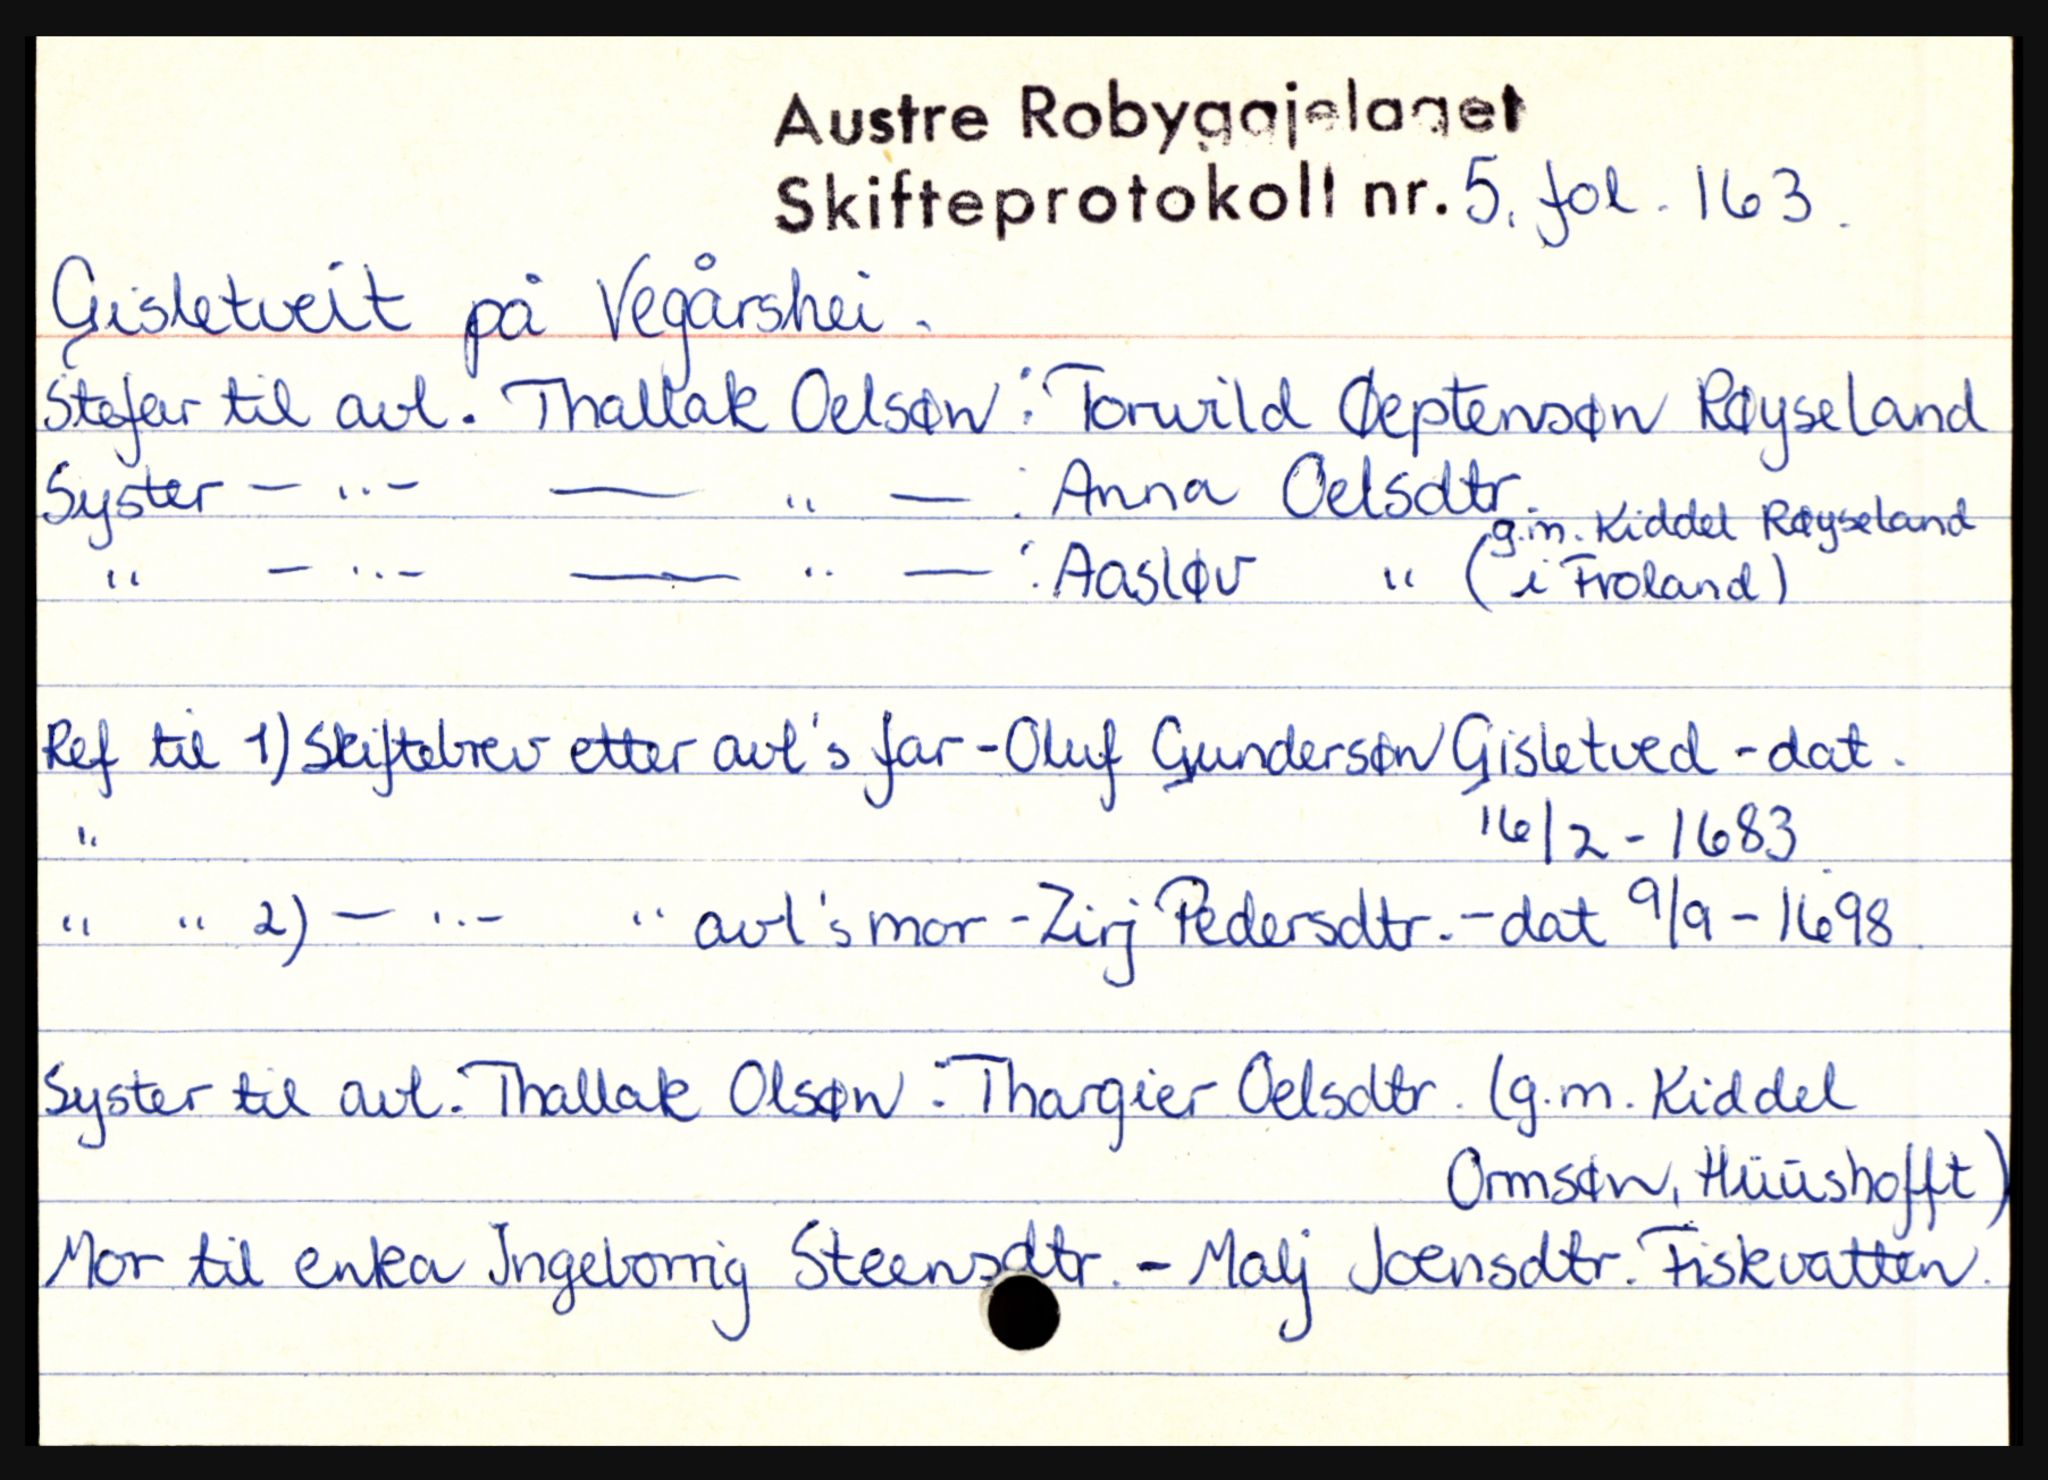 Austre Robyggjelaget
Skifteprotokoll nr. 5, fol. 163.
Gisletveit på Vegårshei.
Stefar til avl. Thallak Oelsøn : Torwild Øeptensøn Røyseland
Syster — " — — " — : Anna Oelsdtr.
g.m. Kiddel Røyseland
" — " — — " — : Aasløv " (i Froland)
Ref til 1) Skiftebrev etter avl's far - Oluf Gundersøn Gisletved - dat.
" 16/2 - 1683
" " 2) — " — " avl's mor - Zirj Pedersdtr. - dat 9/9 - 1698
Syster til avl. Thallak Olsøn : Thargier Oelsdtr. (g.m. Kiddel
Ormsøn, Hüüshofft)
Mor til enka Ingeborrig Steensdtr. - Malj Joensdtr. Fiskvatten.